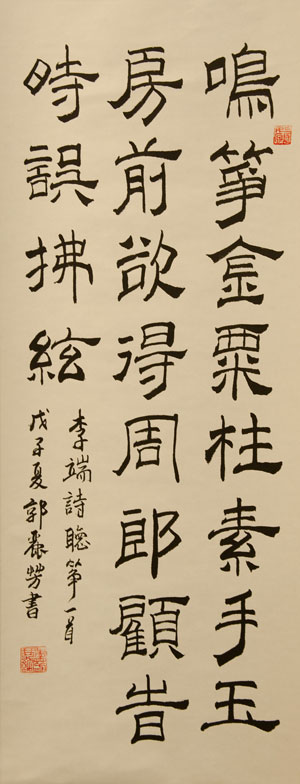 鳴箏金粟柱素手玉
房前欲得周郎顧旹
時誤拂絃
李端詩聽箏一首
戊子夏郭書